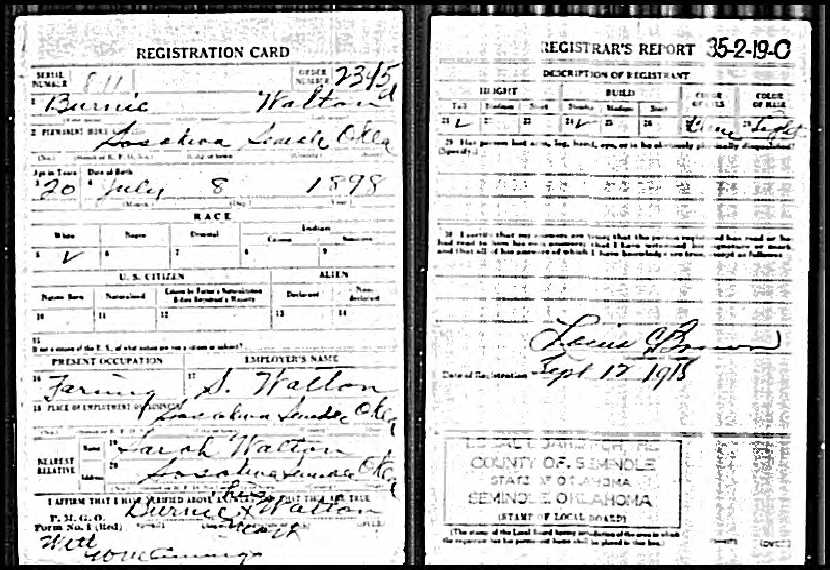 REGISTRATION CARD
SERIAL NUMBER 811
ORDER NUMBER 2345
1 Burnie Walton
2 PERMANENT HOME ADDRESS
Sasakwa Seminole Okla
Age in Years Date of Birth
3 20 4 July 8 1898
(Month) (Day) (Year)
RACE
White Negro Oriental Indian
Citizen Noncitizen
5 ✓ 6 7 8 9
U. S. CITIZEN ALIEN
Native Born Naturalized Citizen by Father's Naturalization Before Registrant's Majority Declared Non-declarant
10 11 12 13 14
15
If not a citizen of the U. S., of what nation are you a citizen or subject?
PRESENT OCCUPATION EMPLOYER'S NAME
16 Farming 17 S. Walton
18 PLACE OF EMPLOYMENT OR BUSINESS
Sasakwa Seminole Okla
NEAREST RELATIVE
Name 19 Sarah Walton
Address 20 Sasakwa Seminole Okla
I AFFIRM THAT I HAVE VERIFIED ABOVE ANSWERS AND THAT THEY ARE TRUE
P. M. G. O.
Form No. 1 (Red)
his
Burnie X Walton
mark
REGISTRAR'S REPORT 35-2-19-C
DESCRIPTION OF REGISTRANT
HEIGHT BUILD COLOR OF EYES COLOR OF HAIR
Tall Medium Short Slender Medium Stout
21 ✓ 22 23 24 ✓ 25 26 27 28 Light
29 Has person lost arm, leg, hand, eye, or is he obviously physically disqualified?
(Specify.)
30 I certify that my answers are true; that the person registered has read or has
had read to him his own answers; that I have witnessed his signature or mark,
and that all of his answers of which I have knowledge are true, except as follows:
Louis C Brown
Date of Registration Sept 12 1918
COUNTY OF SEMINOLE
STATE OF OKLAHOMA
SEMINOLE OKLAHOMA
(STAMP OF LOCAL BOARD)
(The stamp of the Local Board having jurisdiction of the area in which
the registrant has his permanent home shall be placed in this box.)
(OVER)